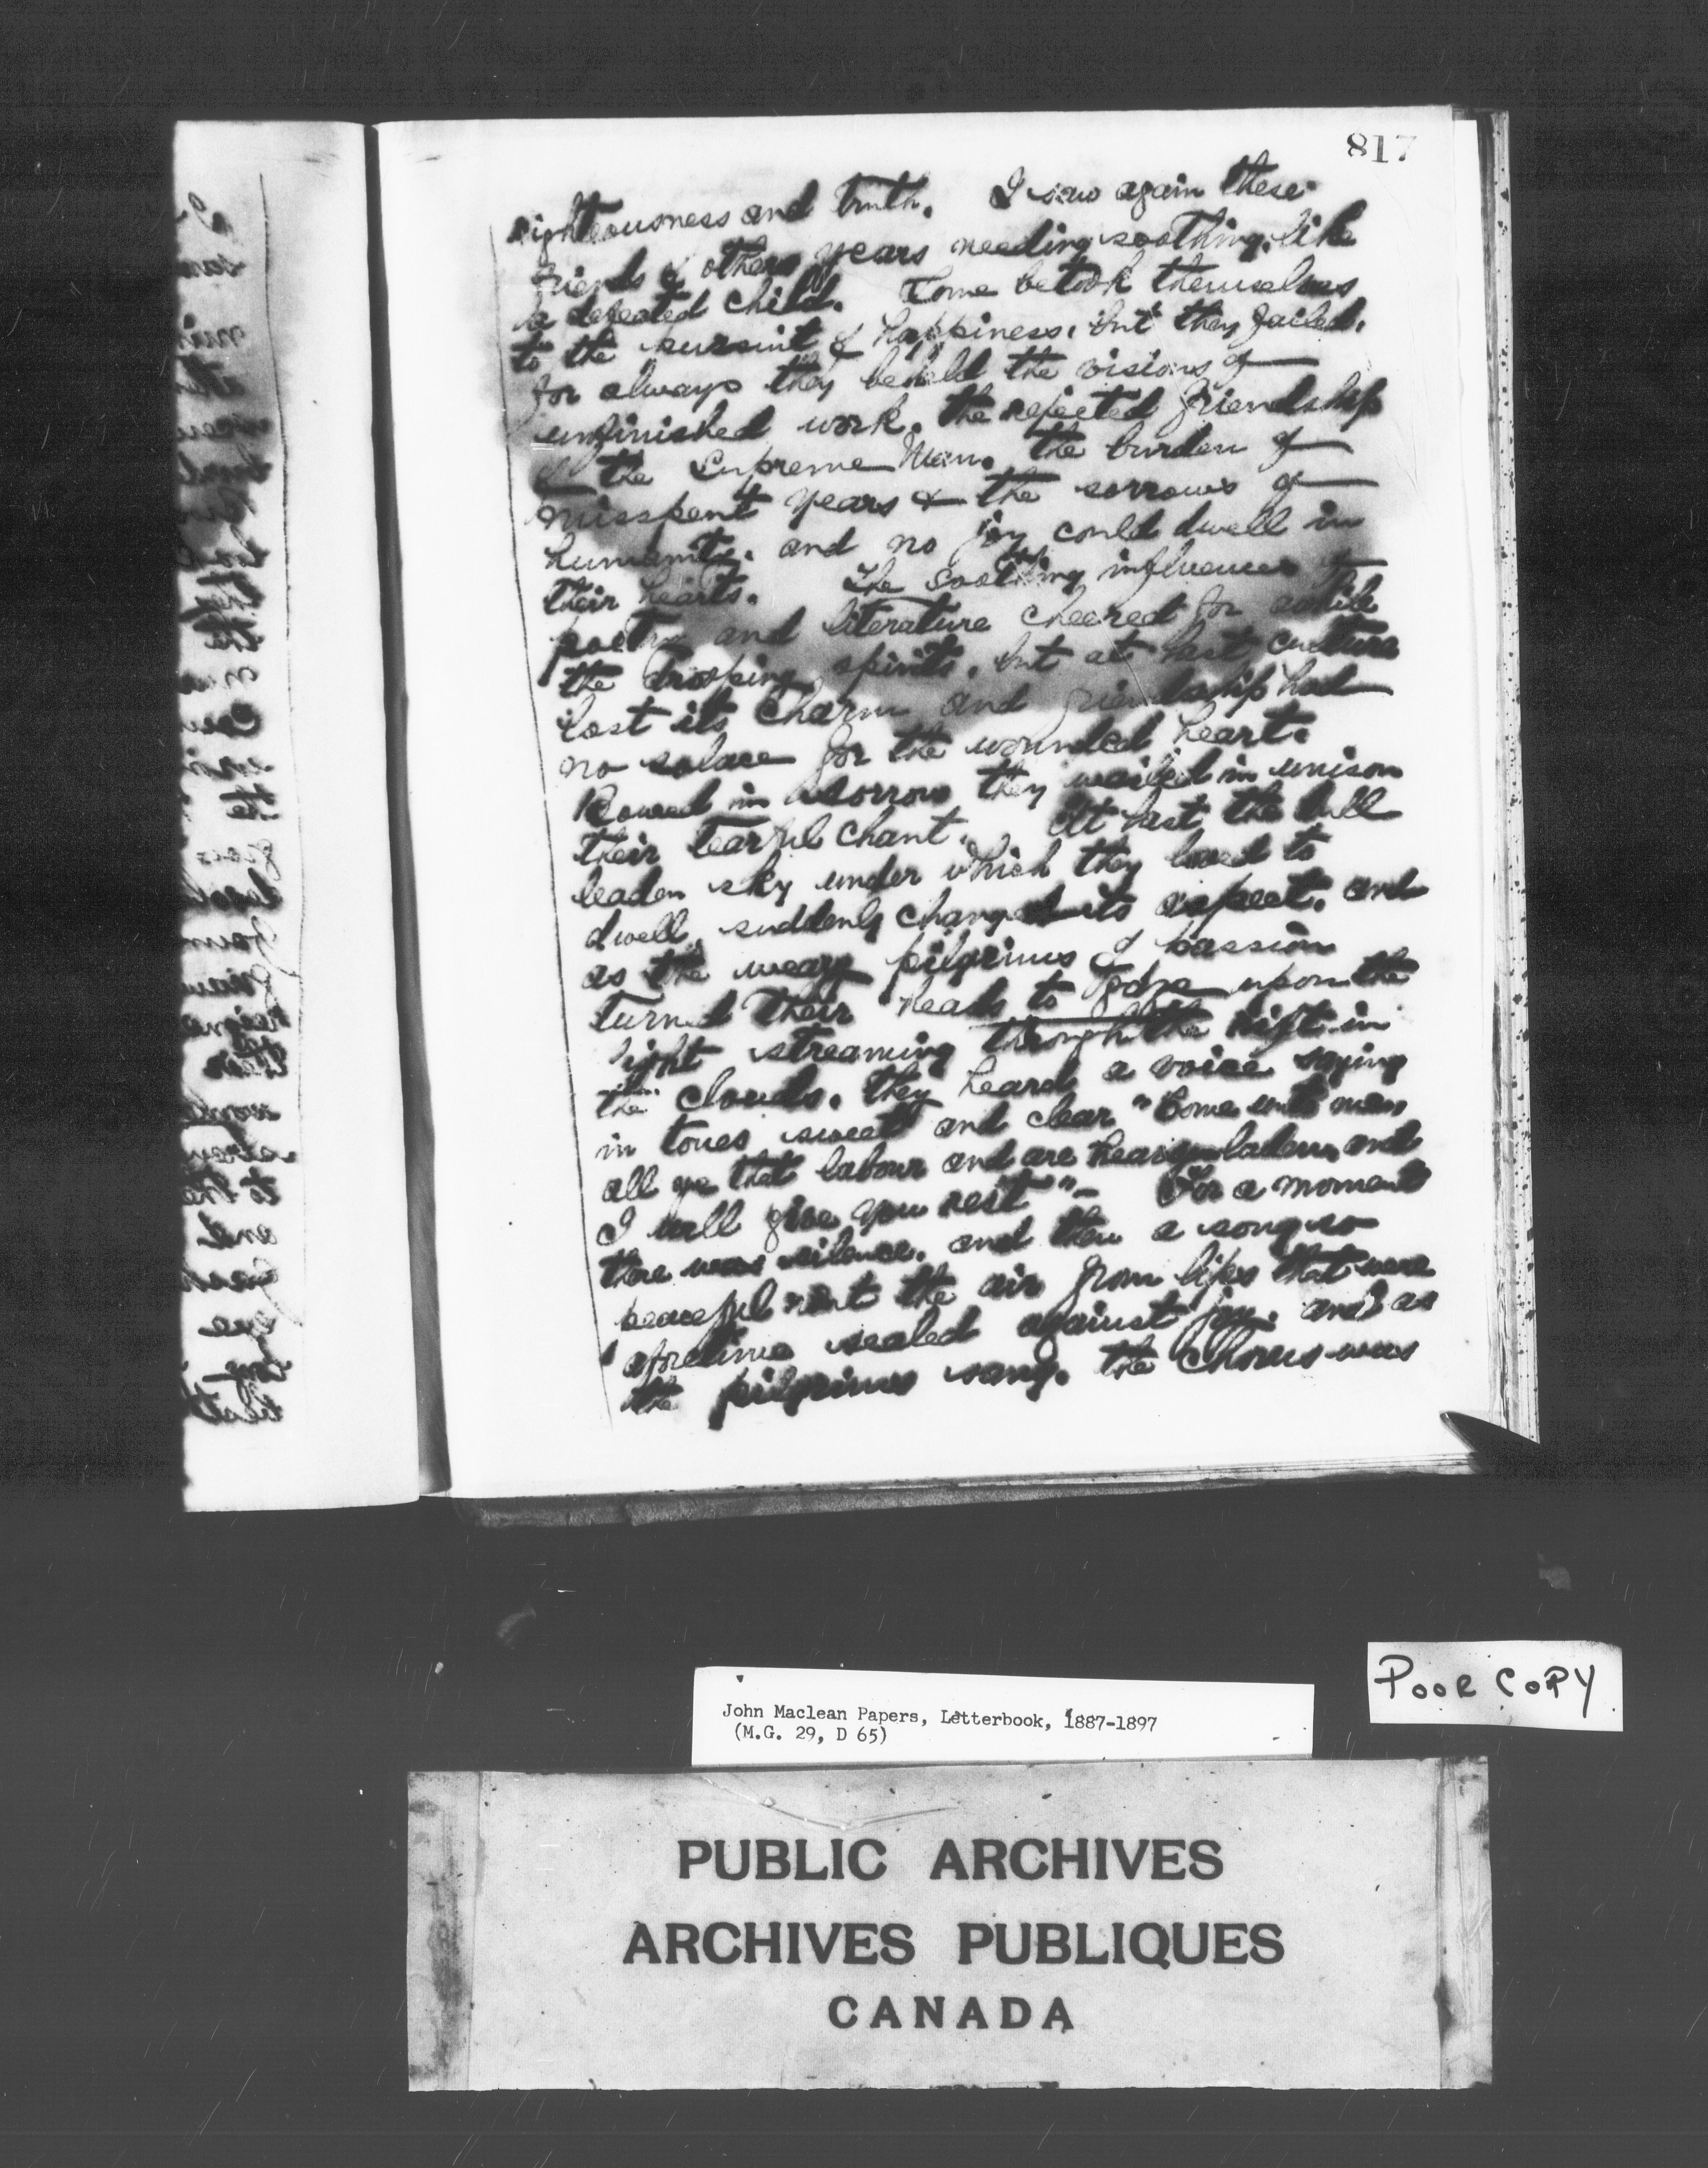 817
righteousness and truth. I saw again these
friends of other years needing soothing, like
a defeated child. Some betook themselves
to the pursuit of happiness, but they failed,
for always they beheld the visions of
unfinished work, the rejected friendship
of the Supreme Man, the burden of
misspent years & the sorrows of
humanity, and no joy could dwell in
their hearts. The soothing influences of
poetry and literature cheered for awhile
the drooping spirits, but at last culture
lost its charm and friendship had
no solace for the wounded heart.
Bowed in sorrow they wailed in unison
their tearful chant. At last the dull
leaden sky under which they loved to
dwell, suddenly changed its aspect, and
as the weary pilgrims of passion
turned their heads to gaze upon the
light streaming through the rift in
the clouds, they heard a voice saying
in tones sweet and clear "Come unto me
all ye that labour and are heavy laden, and
I will give you rest"- For a moment
there was silence, and then a song so
peaceful rent the air from lips that were
aforetime sealed against joy, and as
the pilgrims sang, the chorus was
POOR COPY
John Maclean Papers, Letterbook, 1887-1897
(M.G. 29, D 65)
PUBLIC ARCHIVES
ARCHIVES PUBLIQUES
CANADA